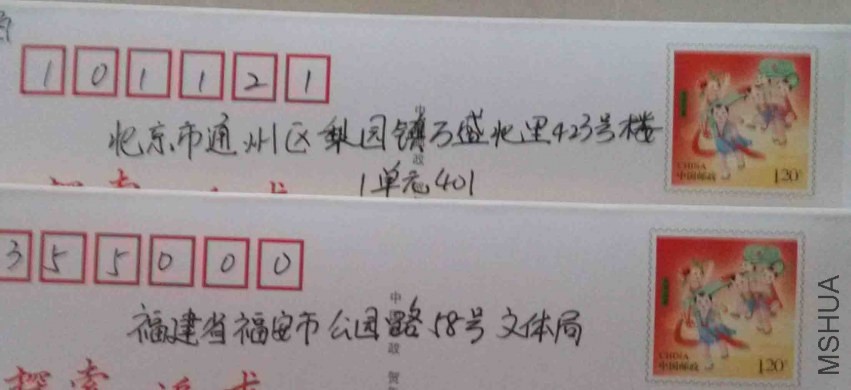 101121
北京市通州区梨园镇万盛北里423号楼
1单元401
CHINA
中国邮政
1.20
355000
福建省福安市公园路58号文体局
CHINA
中国邮政
1.20
探索 追求
MSHUA